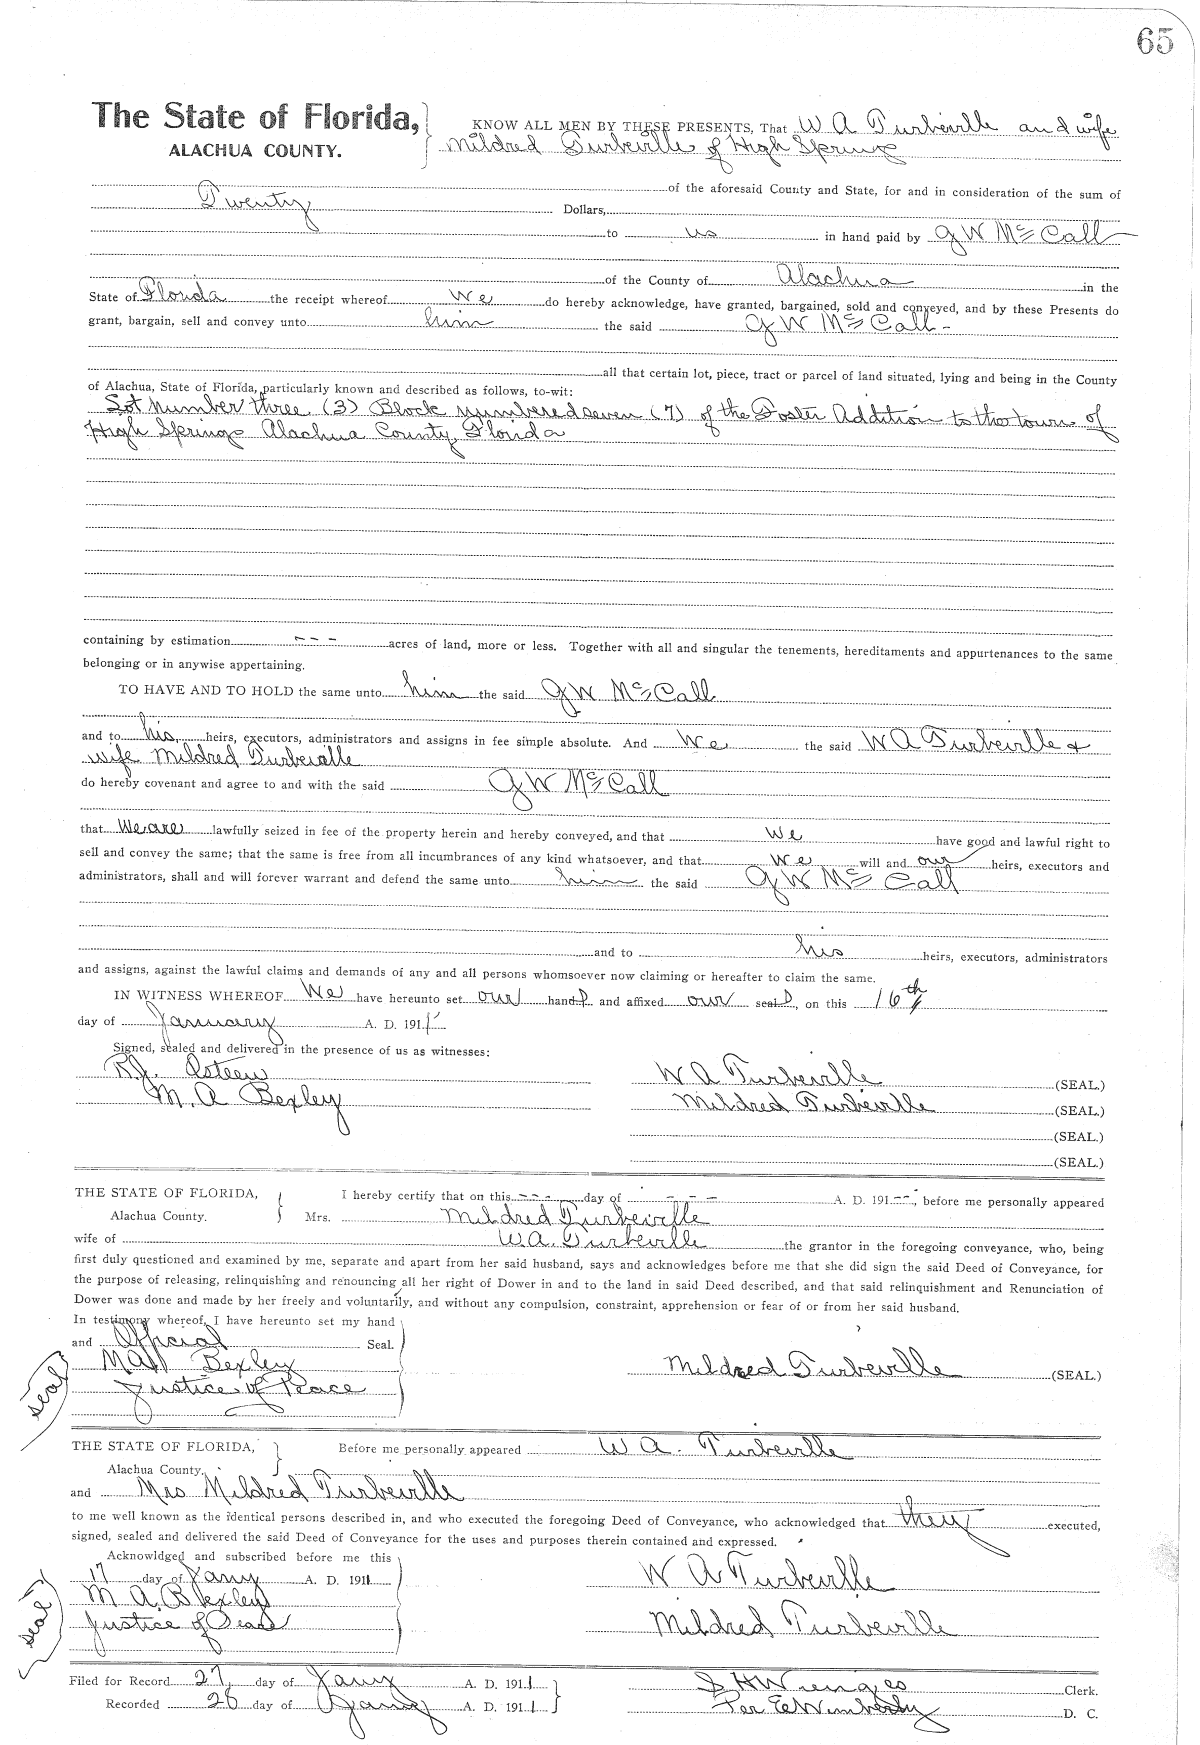 65
The State of Florida, KNOW ALL MEN BY THESE PRESENTS, That W A Turbeville and wife
ALACHUA COUNTY. Mildred Turbeville of High Springs
of the aforesaid County and State, for and in consideration of the sum of
Twenty Dollars,
to us in hand paid by G W McCall
of the County of Alachua in the
State of Florida the receipt whereof We do hereby acknowledge, have granted, bargained, sold and conveyed, and by these Presents do
grant, bargain, sell and convey unto him the said G W McCall -
all that certain lot, piece, tract or parcel of land situated, lying and being in the County
of Alachua, State of Florida, particularly known and described as follows, to-wit:
Lot number three (3) Block numbered seven (7) of the Foster Addition to the town of
High Springs Alachua County, Florida
containing by estimation - - - acres of land, more or less. Together with all and singular the tenements, hereditaments and appurtenances to the same
belonging or in anywise appertaining.
TO HAVE AND TO HOLD the same unto him the said G W McCall
and to his heirs, executors, administrators and assigns in fee simple absolute. And We the said W A Turbeville &
wife Mildred Turbeville
do hereby covenant and agree to and with the said G W McCall
that We are lawfully seized in fee of the property herein and hereby conveyed, and that We have good and lawful right to
sell and convey the same; that the same is free from all incumbrances of any kind whatsoever, and that We will and our heirs, executors and
administrators, shall and will forever warrant and defend the same unto him the said G W McCall
and to his heirs, executors, administrators
and assigns, against the lawful claims and demands of any and all persons whomsoever now claiming or hereafter to claim the same.
IN WITNESS WHEREOF We have hereunto set our hands and affixed our seals, on this 16th
day of January A. D. 1911
Signed, sealed and delivered in the presence of us as witnesses:
R.J. Osteen W A Turbeville (SEAL.)
M. A Bexley Mildred Turbeville (SEAL.)
(SEAL.)
(SEAL.)
THE STATE OF FLORIDA, I hereby certify that on this - - - day of - - - A. D. 191 - -, before me personally appeared
Alachua County. Mrs. Mildred Turbeville
wife of W.A. Turbeville the grantor in the foregoing conveyance, who, being
first duly questioned and examined by me, separate and apart from her said husband, says and acknowledges before me that she did sign the said Deed of Conveyance, for
the purpose of releasing, relinquishing and renouncing all her right of Dower in and to the land in said Deed described, and that said relinquishment and Renunciation of
Dower was done and made by her freely and voluntarily, and without any compulsion, constraint, apprehension or fear of or from her said husband.
In testimony whereof, I have hereunto set my hand
and Official Seal.
M A Bexley Mildred Turbeville (SEAL.)
seal Justice of Peace
THE STATE OF FLORIDA, Before me personally appeared W A. Turbeville
Alachua County.
and Mrs Mildred Turbeville
to me well known as the identical persons described in, and who executed the foregoing Deed of Conveyance, who acknowledged that they executed,
signed, sealed and delivered the said Deed of Conveyance for the uses and purposes therein contained and expressed.
Acknowldged and subscribed before me this
17 day of Jany A. D. 1911 W A Turbeville
M A. Bexley
seal Justice of Peace Mildred Turbeville
Filed for Record 27 day of Jany A. D. 1911 S H Wienges Clerk.
Recorded 28 day of Jany A. D. 1911 Per E Wimberly D. C.